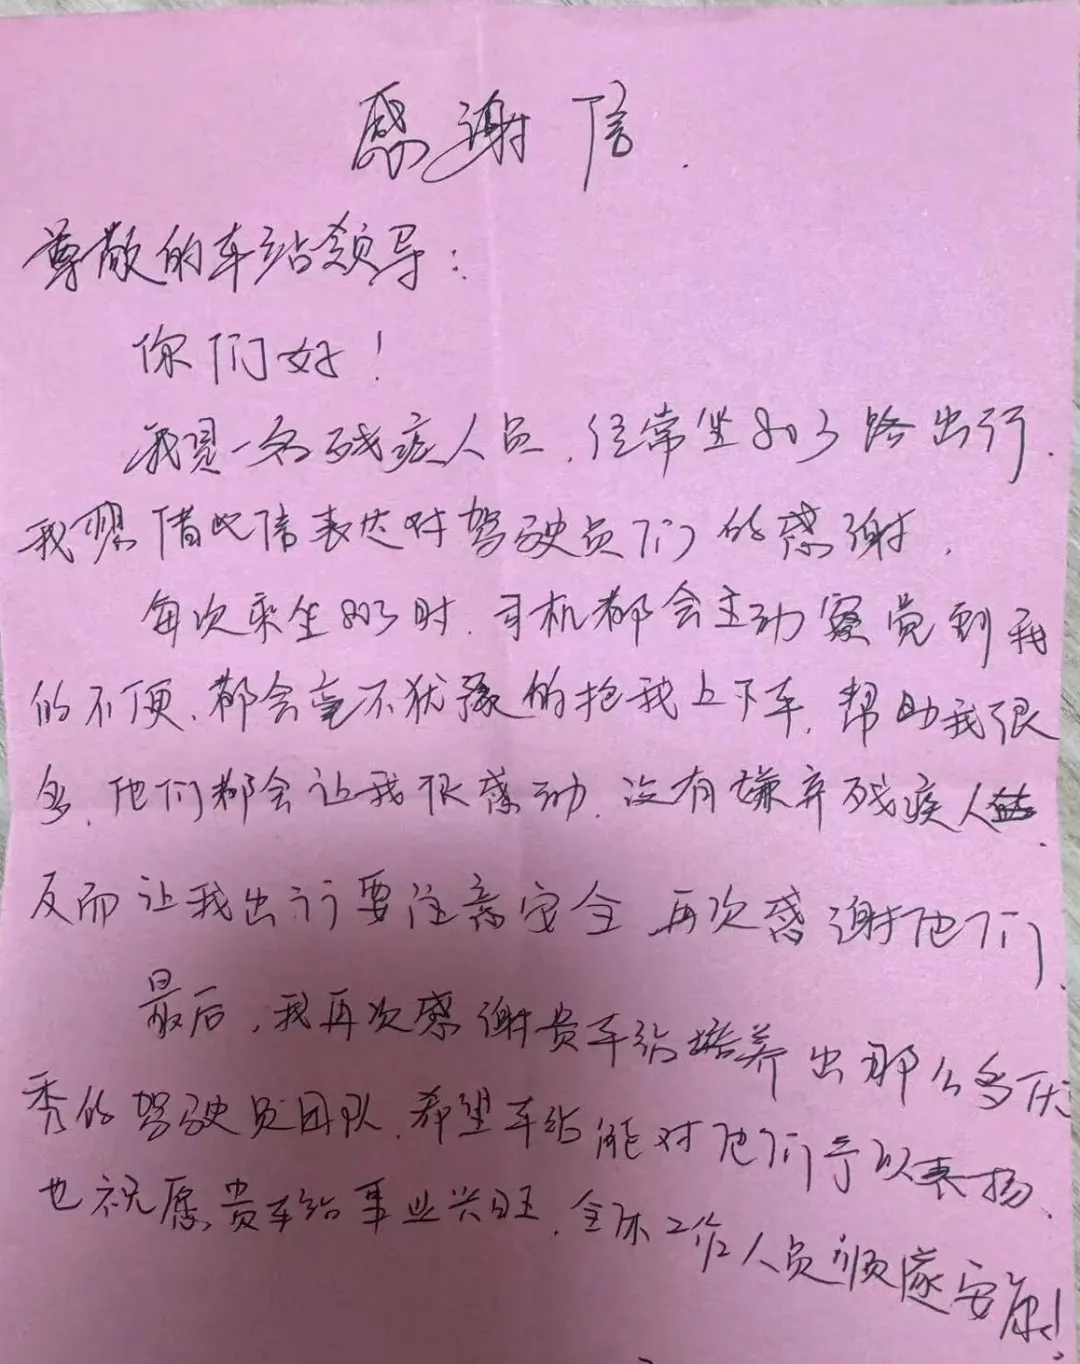 感谢信.
尊敬的车站领导：
你们好！
我是一名残疾人员，经常坐803路出行.
我想借此信表达对驾驶员们的感谢.
每次乘坐803时，司机都会主动察觉到我
的不便，都会毫不犹豫的抱我上下车，帮助我很
多，他们都会让我很感动，没有嫌弃残疾人
反而让我出行要注意安全，再次感谢他们.
最后，我再次感谢贵车站培养出那么多优
秀的驾驶员团队，希望车站能对他们予以表扬、
也祝愿贵车站事业兴旺，全体工作人员顺遂安康！